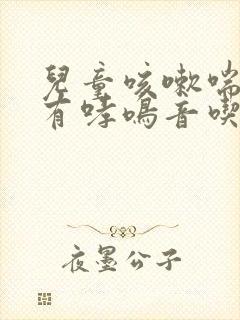 兒童咳嗽喘
有哮鳴音喫
夜墨公子